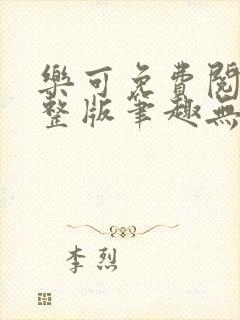 樂可免費閱
整版筆趣無
李烈